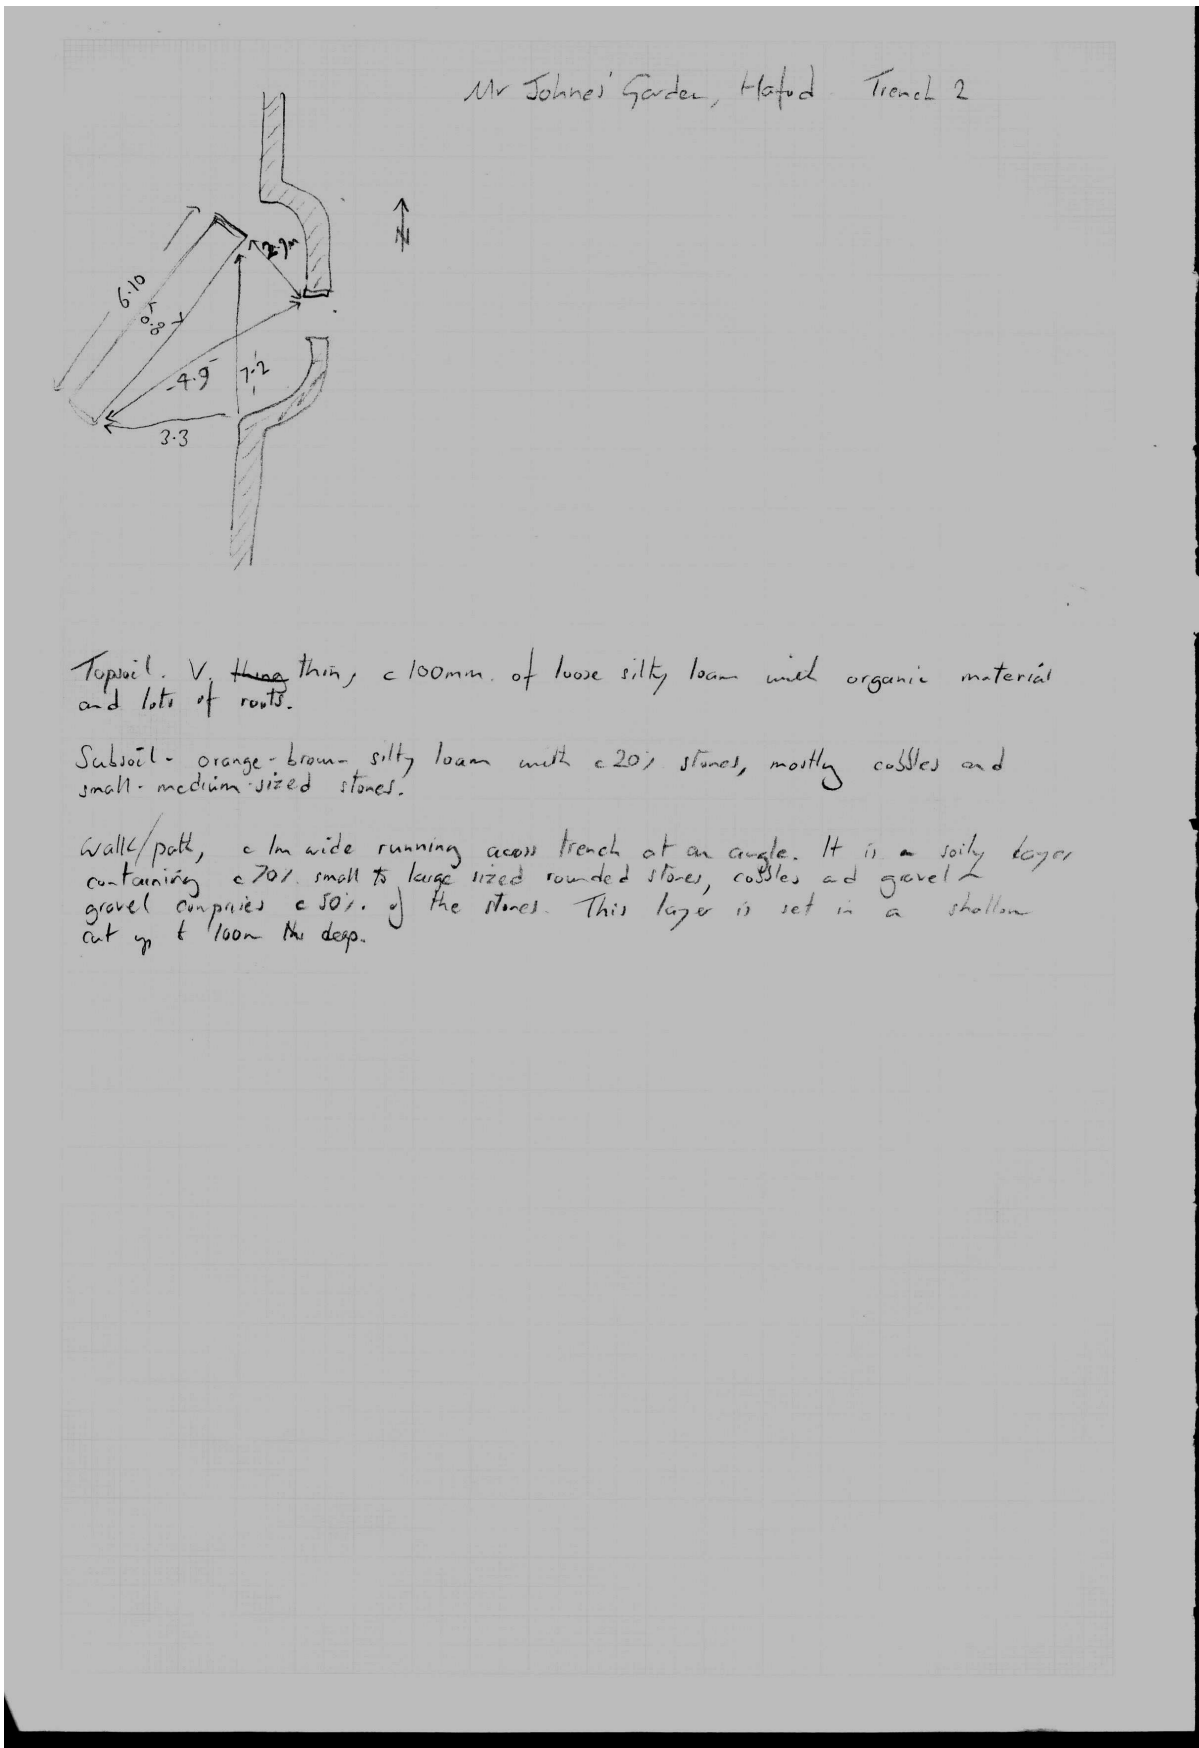 Mr Johnes' Garden, Hafod Trench 2
N
2.9m
6.10
0.8
4.9
7.2
3.3
Topsoil. V. thing thin, c 100mm. of loose silty loam with organic material
and lots of roots.
Subsoil - orange-brown silty loam with c 20% stones, mostly cobbles and
small-medium-sized stones.
Walk/path, c 1m wide running across trench at an angle. It is a soily layer
containing c 70% small to large sized rounded stones, cobbles and gravel -
gravel comprises c 50% of the stones. This layer is set in a shallow
cut up to 100m deep.